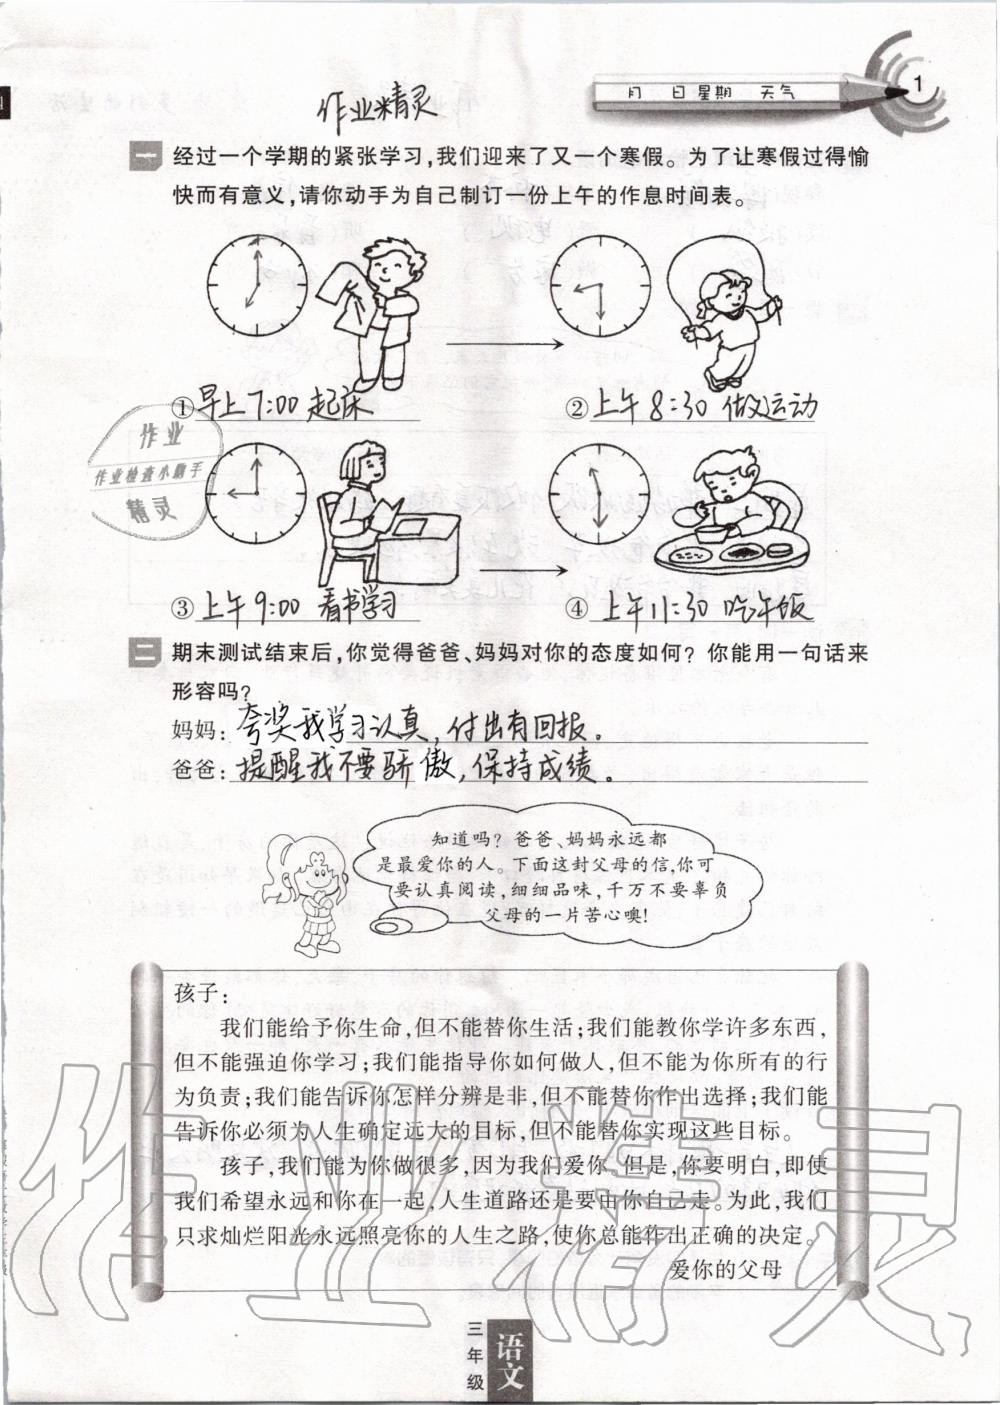 月 日 星期 天气 1
作业精灵
一 经过一个学期的紧张学习,我们迎来了又一个寒假。为了让寒假过得愉
快而有意义,请你动手为自己制订一份上午的作息时间表。
①早上7:00 起床
②上午8:30 做运动
作业
作业检查小助手
精灵
③上午9:00 看书学习
④上午11:30 吃午饭
二 期末测试结束后,你觉得爸爸、妈妈对你的态度如何?你能用一句话来
形容吗?
妈妈:夸奖我学习认真,付出有回报。
爸爸:提醒我不要骄傲,保持成绩。
知道吗?爸爸、妈妈永远都
是最爱你的人。下面这封父母的信,你可
要认真阅读,细细品味,千万不要辜负
父母的一片苦心噢!
孩子:
我们能给予你生命,但不能替你生活;我们能教你学许多东西,
但不能强迫你学习;我们能指导你如何做人,但不能为你所有的行
为负责;我们能告诉你怎样分辨是非,但不能替你作出选择;我们能
告诉你必须为人生确定远大的目标,但不能替你实现这些目标。
孩子,我们能为你做很多,因为我们爱你。但是,你要明白,即使
我们希望永远和你在一起,人生道路还是要由你自己走。为此,我们
只求灿烂阳光永远照亮你的人生之路,使你总能作出正确的决定。
爱你的父母
作业精灵
三年级
语文